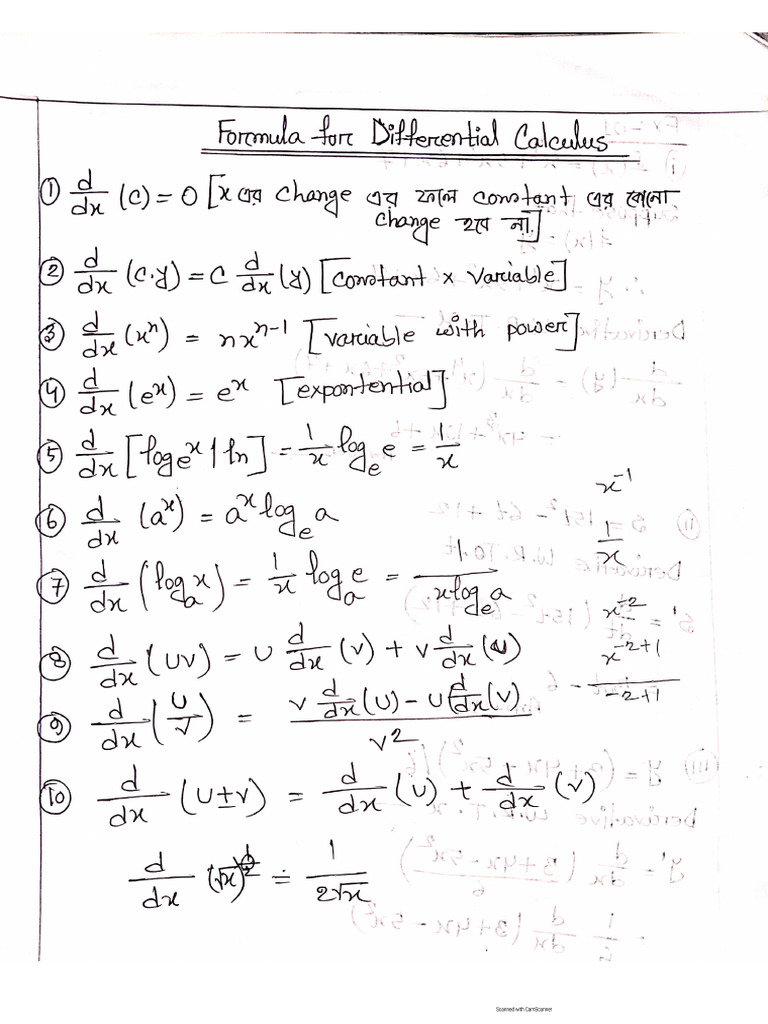 Formula for Differential Calculus
① d/dx (c) = 0 [x এর change এর ফলে constant এর কোনো
change হবে না.]
② d/dx (c.y) = c d/dx (y) [constant × variable]
③ d/dx (xⁿ) = nxⁿ⁻¹ [variable with power]
④ d/dx (eˣ) = eˣ [expontential]
⑤ d/dx [logₑx | ln] = 1/x logₑe = 1/x
x⁻¹
⑥ d/dx (aˣ) = aˣ logₑa
1/x
⑦ d/dx (logₐx) = 1/x logₐe = 1/(x logₑa)
x⁻²
⑧ d/dx (uv) = u d/dx (v) + v d/dx (u)
x⁻²⁺¹/(-2+1)
⑨ d/dx (u/v) = (v d/dx (u) - u d/dx (v))/v²
⑩ d/dx (u±v) = d/dx (u) ± d/dx (v)
d/dx (√x) = 1/(2√x)
Scanned with CamScanner